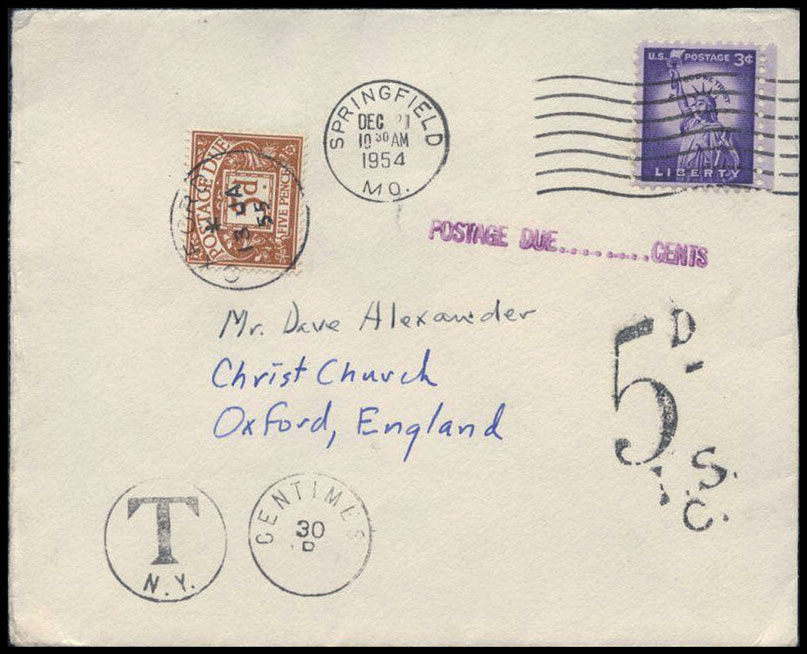 U.S. POSTAGE 3¢
IN GOD WE TRUST
LIBERTY
SPRINGFIELD
DEC 21
10 30 AM
1954
MO.
POSTAGE DUE
FIVE PENCE
OXFORD
13 JA
55
POSTAGE DUE.........CENTS
Mr. Dave Alexander
Christ Church
Oxford, England
5 D.
I.S.
C.
T
N.Y.
CENTIMES
30
D